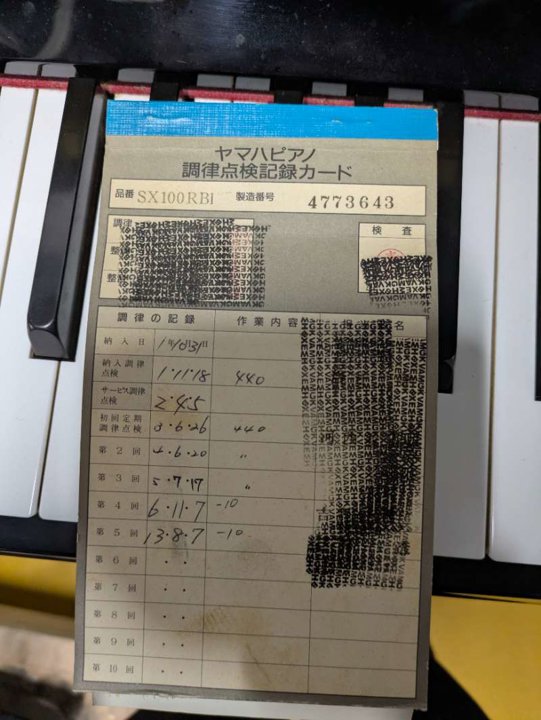 ヤマハピアノ
調律点検記録カード
品番 SX100RBl 製造番号 4773643
調律
検査
整
整
調律の記録 作業内容 名
納入日 1年10月31日
納入調律点検 1・11・18 440
サービス調律点検 2・4・5
初回定期調律点検 3・6・26 440
第2回 4・6・20 〃
第3回 5・7・17 〃
第4回 6・11・7 -10
第5回 13・8・7 -10
第6回 ・・
第7回 ・・
第8回 ・・
第9回 ・・
第10回 ・・